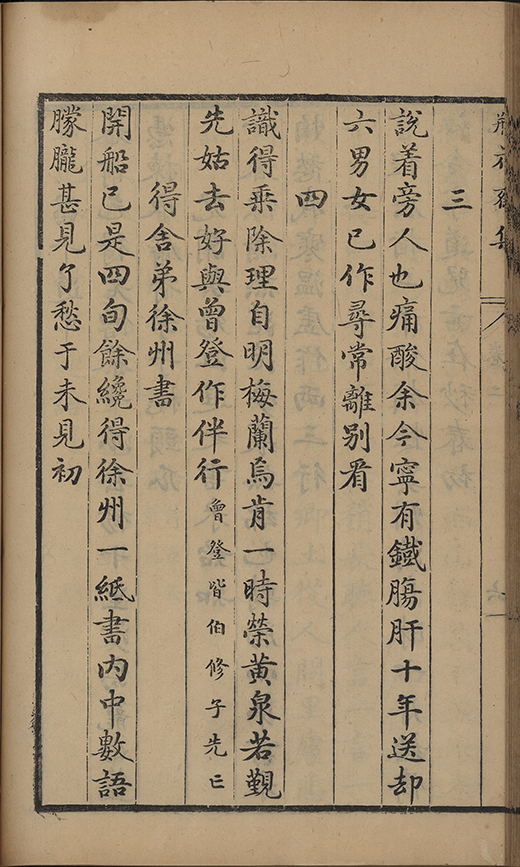 三
說着旁人也痛酸余今寧有鐵膓肝十年送却
六男女已作尋常離别看
四
識得乗除理自明梅蘭焉肯一時榮黄泉若覲
先姑去好與曾登作伴行曾登皆伯修子先亡
得舍弟徐州書
開船已是四旬餘纔得徐州一紙書内中數語
朦朧甚見了愁于未見初